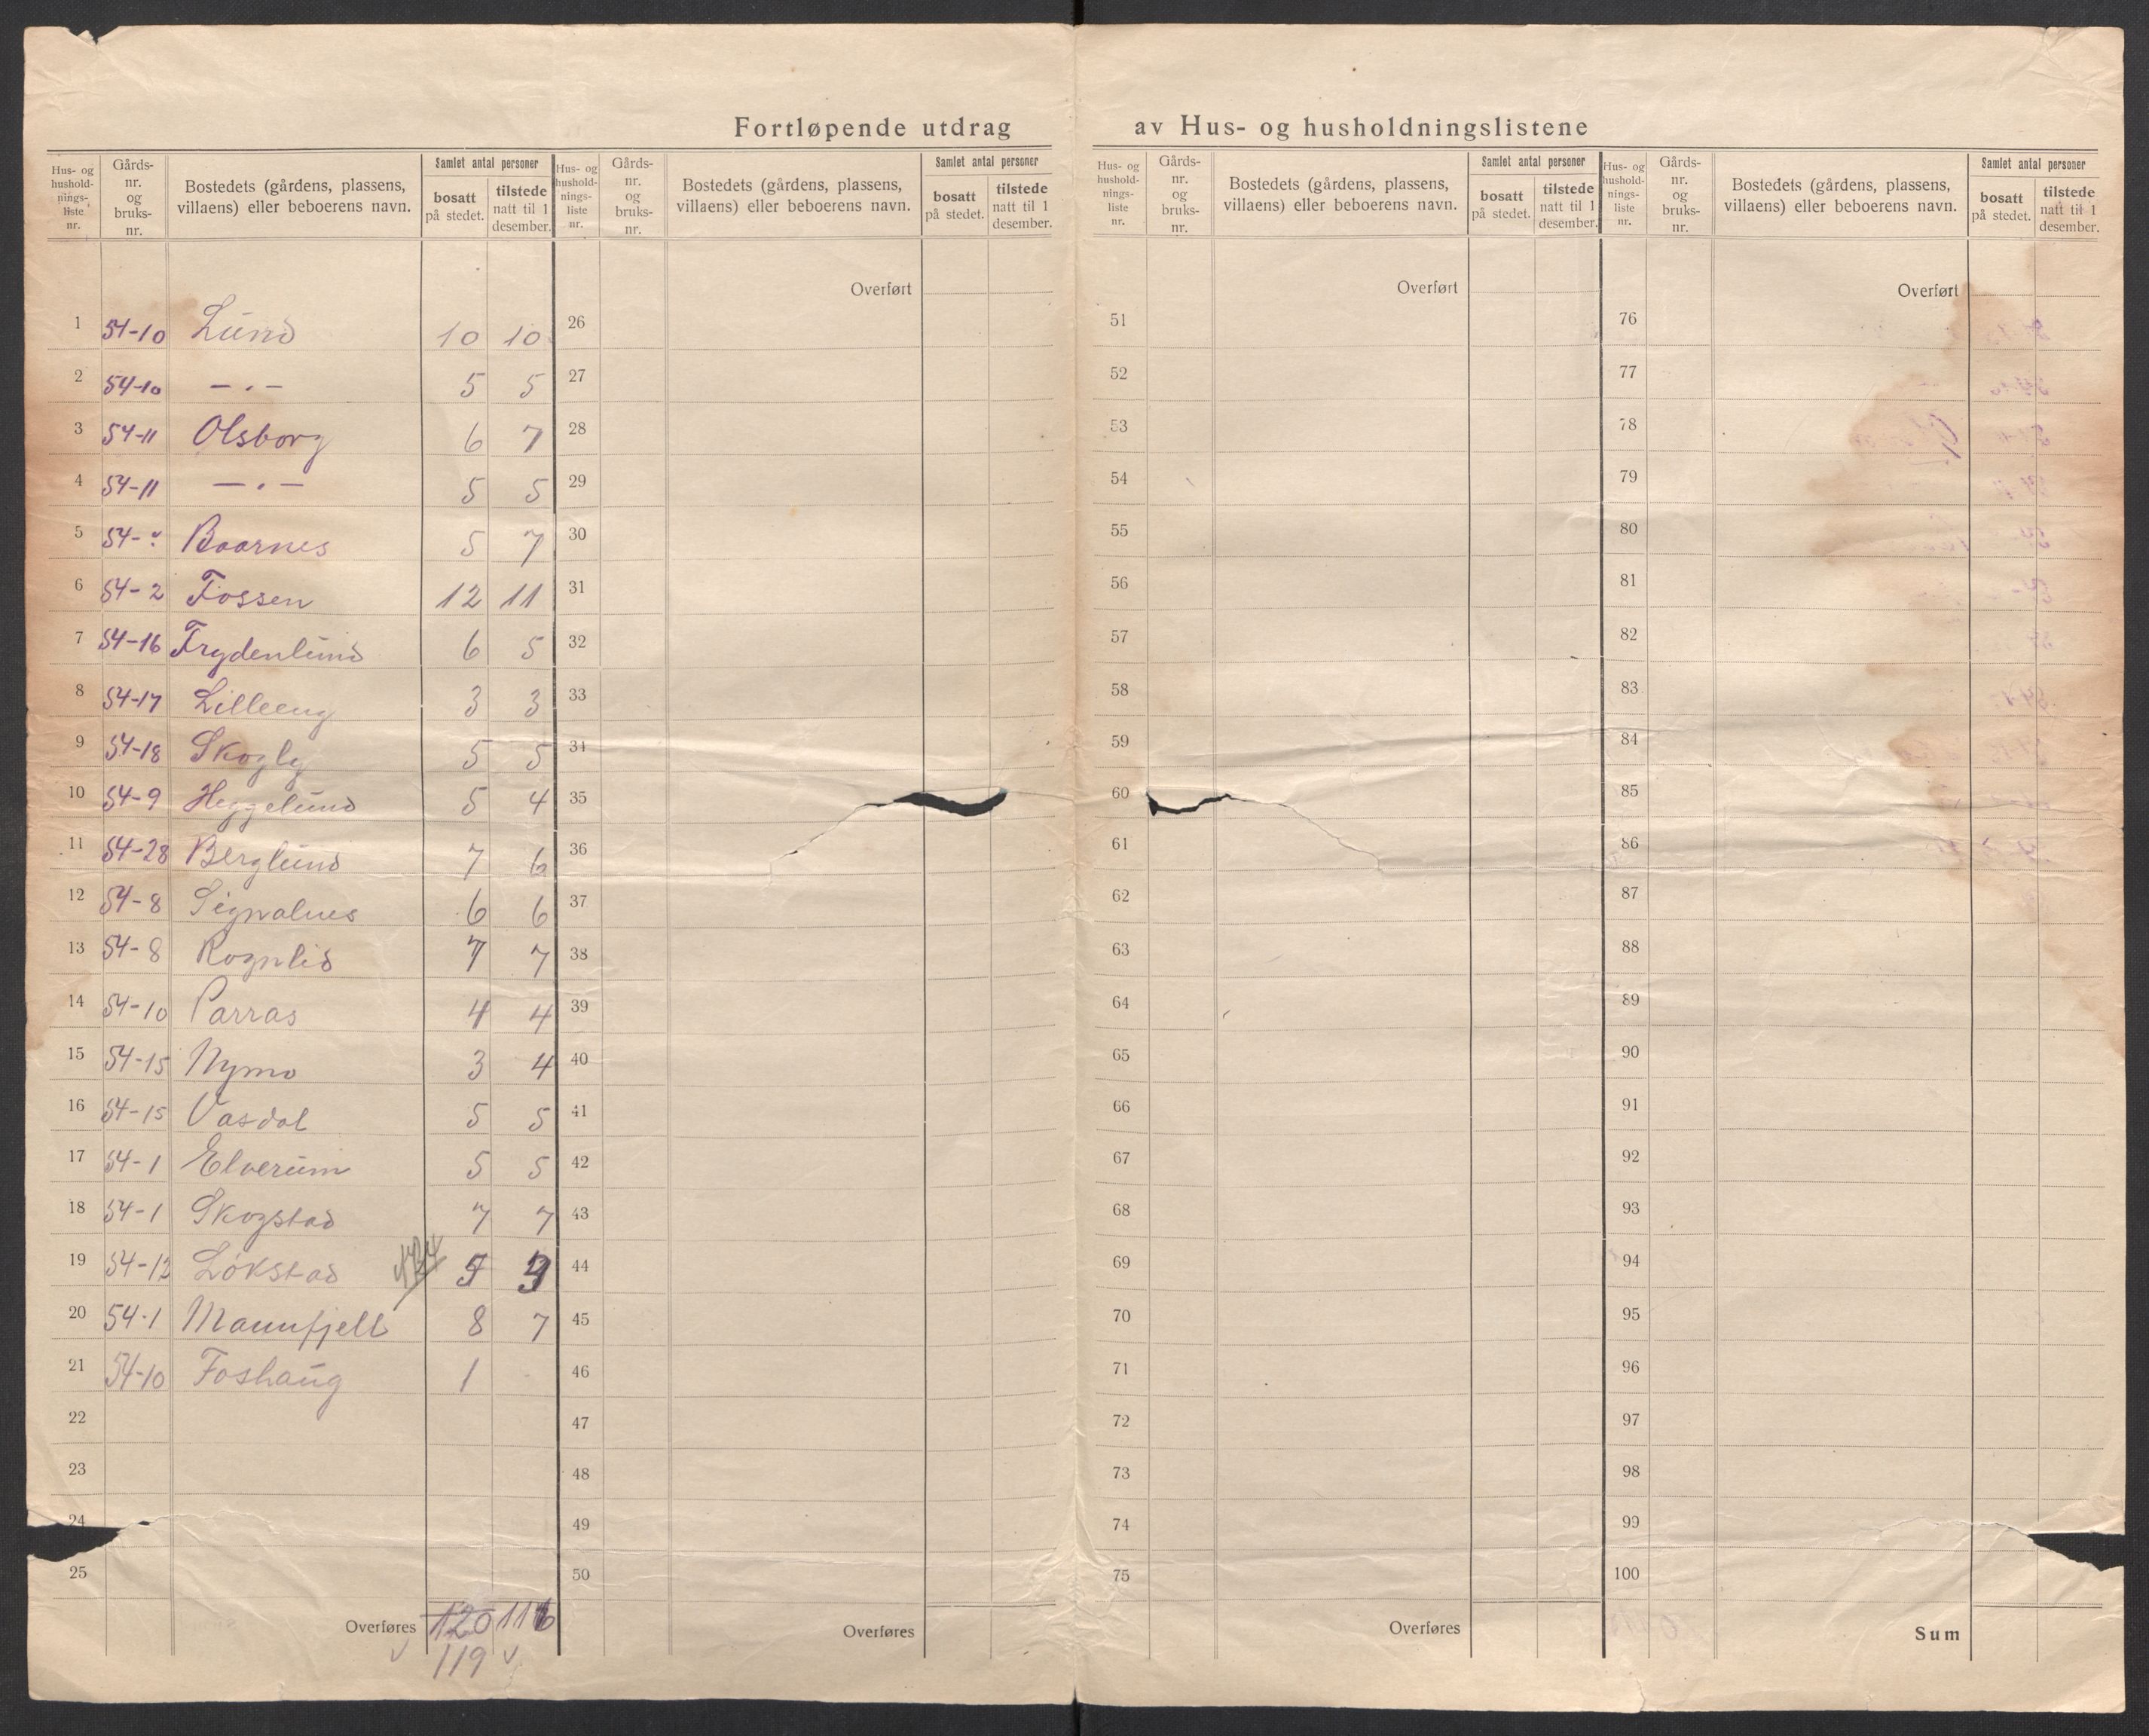 Fortløpende utdrag av Hus- og husholdningslistene
Hus- og hushold-nings-liste nr. Gårds-nr. og bruks-nr. Bostedets (gårdens, plassens, villaens) eller beboerens navn. Samlet antal personer bosatt på stedet. tilstede natt til 1 desember.
1 54-10 Lund 10 10
2 54-10 — . — 5 5
3 54-11 Olsborg 6 7
4 54-11 — . — 5 5
5 54- Baarnes 5 7
6 54-2 Fossen 12 11
7 54-16 Frydenlund 6 5
8 54-17 Lilleeng 3 3
9 54-18 Skogly 5 5
10 54-9 Heggelund 5 4
11 54-28 Berglund 7 6
12 54-8 Signalnes 6 6
13 54-8 Rognlid 7 7
14 54-10 Parras 4 4
15 54-15 Nymo 3 4
16 54-15 Vasdal 5 5
17 54-1 Elverum 5 5
18 54-1 Skogstad 7 7
19 54-12 Lökstad
20 54-1 Maunfjell 8 7
21 54-10 Foshaug 1
22
23
24
25
Overføres 120 116
119
Hus- og hushold-nings-liste nr. Gårds-nr. og bruks-nr. Bostedets (gårdens, plassens, villaens) eller beboerens navn. Samlet antal personer bosatt på stedet. tilstede natt til 1 desember.
Overført
26
27
28
29
30
31
32
33
34
35
36
37
38
39
40
41
42
43
44
45
46
47
48
49
50
Overføres
Hus- og hushold-nings-liste nr. Gårds-nr. og bruks-nr. Bostedets (gårdens, plassens, villaens) eller beboerens navn. Samlet antal personer bosatt på stedet. tilstede natt til 1 desember.
Overført
51
52
53
54
55
56
57
58
59
60
61
62
63
64
65
66
67
68
69
70
71
72
73
74
75
Overføres
Hus- og hushold-nings-liste nr. Gårds-nr. og bruks-nr. Bostedets (gårdens, plassens, villaens) eller beboerens navn. Samlet antal personer bosatt på stedet. tilstede natt til 1 desember.
Overført
76
77
78
79
80
81
82
83
84
85
86
87
88
89
90
91
92
93
94
95
96
97
98
99
100
Sum